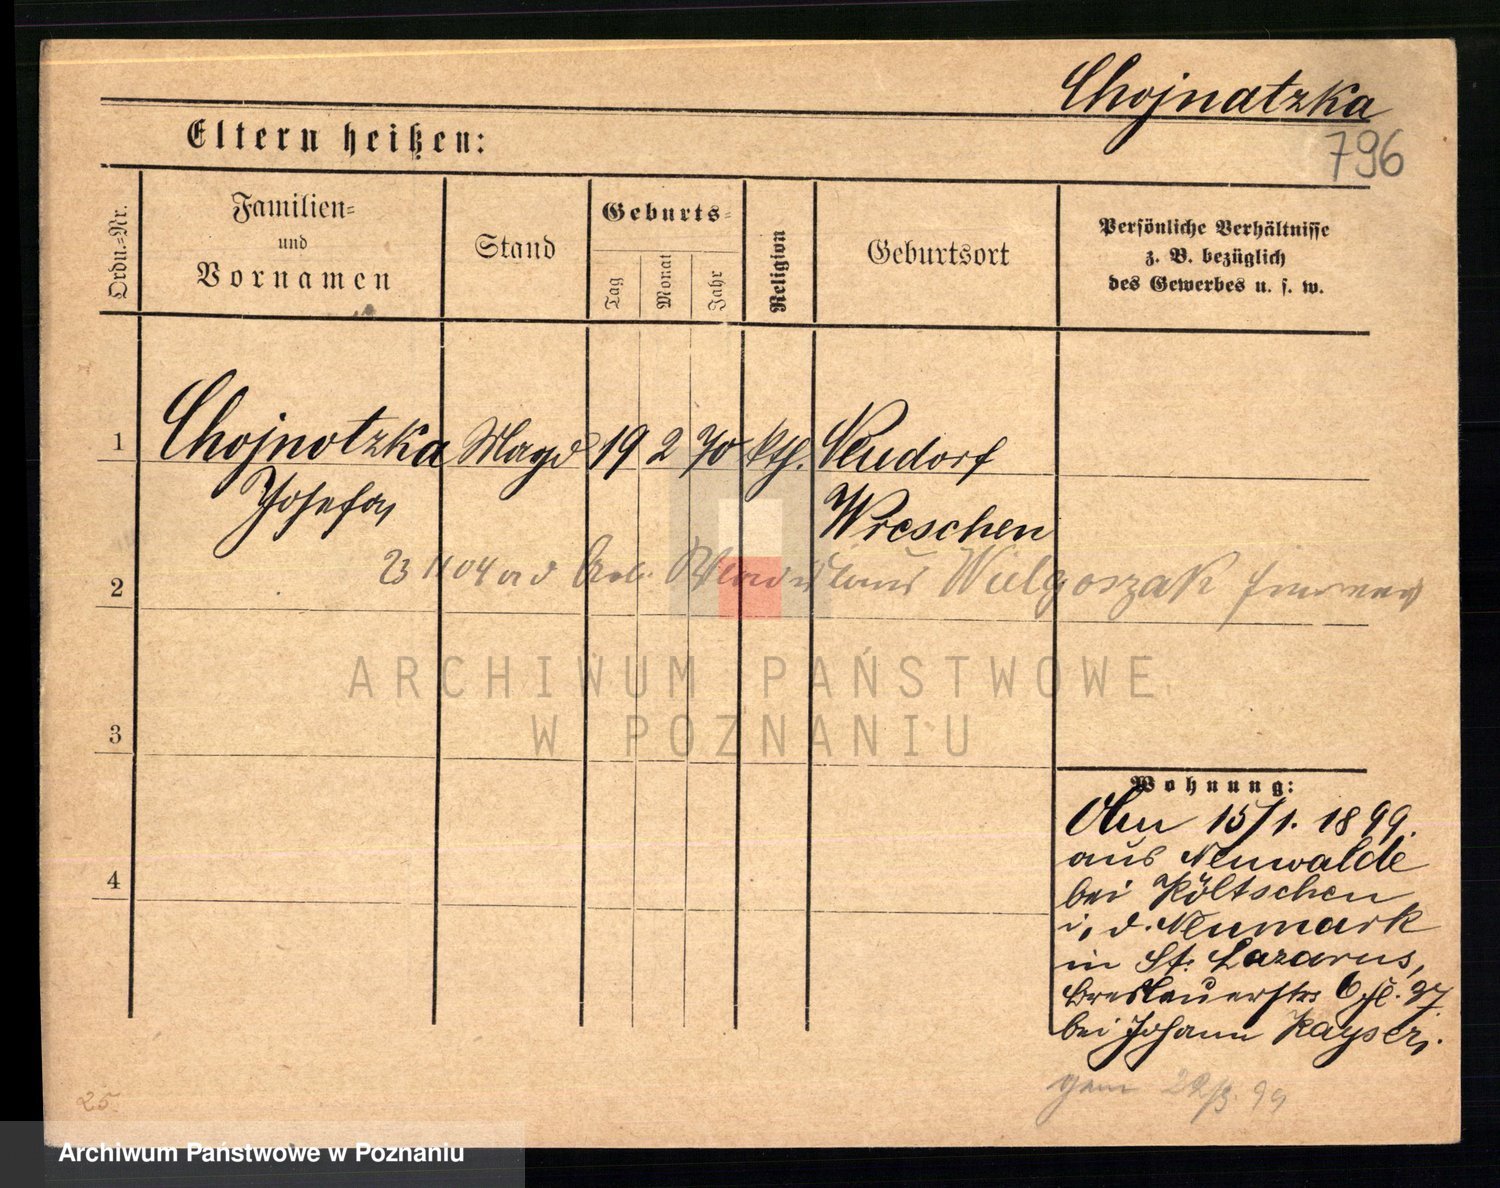 Chojnatzka
796
Eltern heißen:
Ordn.=Nr.
Familien=
und
Vornamen
Stand
Geburts=
Tag
Monat
Jahr
Religion
Geburtsort
Persönliche Verhältnisse
z. B. bezüglich
des Gewerbes u. s. w.
1
Chojnotzka Magd 19 2 70 kth. Neudorf
Josefa
Wreschen
2
23 11 04 Arb. Wladislaus Wielgoszak
ARCHIWUM PAŃSTWOWE
W POZNANIU
3
4
Wohnung:
15/1. 1899.
aus Neuwalde
bei Költschen
i. d. Neumark
in St. Lazarus,
Breslauerstr 6
bei Johann Kayser.
gem 22/3. 99
25.
Archiwum Państwowe w Poznaniu